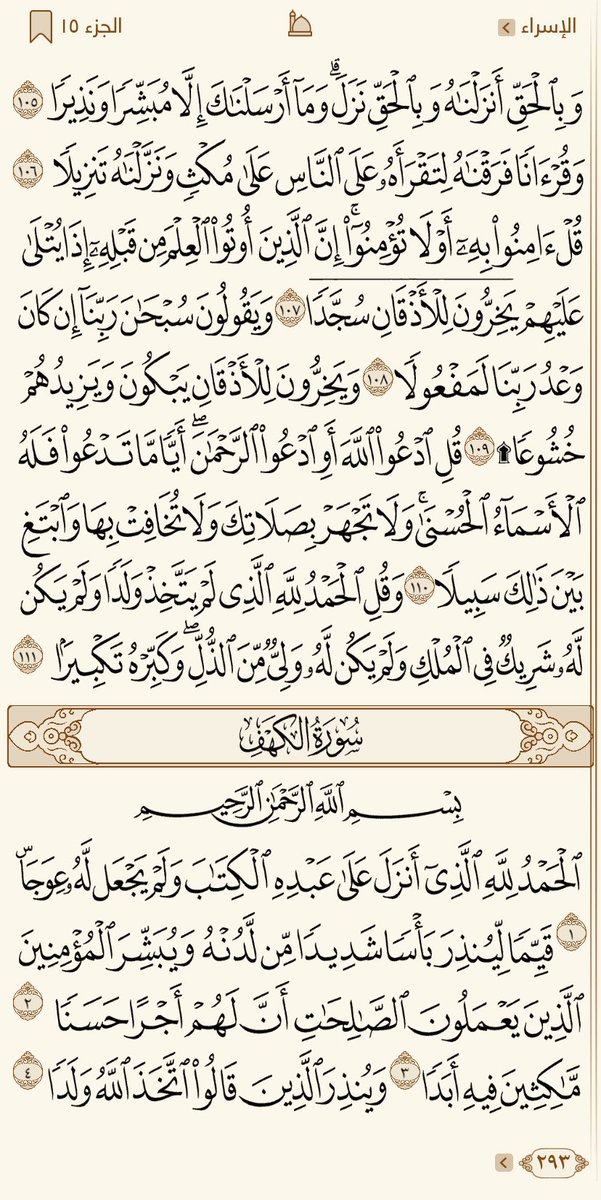 الإسراء
الجزء ١٥
وَبِٱلْحَقِّ أَنزَلْنَٰهُ وَبِٱلْحَقِّ نَزَلَۗ وَمَآ أَرْسَلْنَٰكَ إِلَّا مُبَشِّرًا وَنَذِيرًا ١٠٥
وَقُرْءَانًا فَرَقْنَٰهُ لِتَقْرَأَهُۥ عَلَى ٱلنَّاسِ عَلَىٰ مُكْثٍ وَنَزَّلْنَٰهُ تَنزِيلًا ١٠٦
قُلْ ءَامِنُوا۟ بِهِۦٓ أَوْ لَا تُؤْمِنُوٓا۟ۚ إِنَّ ٱلَّذِينَ أُوتُوا۟ ٱلْعِلْمَ مِن قَبْلِهِۦٓ إِذَا يُتْلَىٰ
عَلَيْهِمْ يَخِرُّونَ لِلْأَذْقَانِ سُجَّدًا ١٠٧ وَيَقُولُونَ سُبْحَٰنَ رَبِّنَآ إِن كَانَ
وَعْدُ رَبِّنَا لَمَفْعُولًا ١٠٨ وَيَخِرُّونَ لِلْأَذْقَانِ يَبْكُونَ وَيَزِيدُهُمْ
خُشُوعًا۩ ١٠٩ قُلِ ٱدْعُوا۟ ٱللَّهَ أَوِ ٱدْعُوا۟ ٱلرَّحْمَٰنَۖ أَيًّا مَّا تَدْعُوا۟ فَلَهُ
ٱلْأَسْمَآءُ ٱلْحُسْنَىٰۚ وَلَا تَجْهَرْ بِصَلَاتِكَ وَلَا تُخَافِتْ بِهَا وَٱبْتَغِ
بَيْنَ ذَٰلِكَ سَبِيلًا ١١٠ وَقُلِ ٱلْحَمْدُ لِلَّهِ ٱلَّذِى لَمْ يَتَّخِذْ وَلَدًا وَلَمْ يَكُن
لَّهُۥ شَرِيكٌ فِى ٱلْمُلْكِ وَلَمْ يَكُن لَّهُۥ وَلِىٌّ مِّنَ ٱلذُّلِّۖ وَكَبِّرْهُ تَكْبِيرًۢا ١١١
سُورَةُ الكَهْفِ
بِسْمِ ٱللَّهِ ٱلرَّحْمَٰنِ ٱلرَّحِيمِ
ٱلْحَمْدُ لِلَّهِ ٱلَّذِىٓ أَنزَلَ عَلَىٰ عَبْدِهِ ٱلْكِتَٰبَ وَلَمْ يَجْعَل لَّهُۥ عِوَجَاۜ
١ قَيِّمًا لِّيُنذِرَ بَأْسًا شَدِيدًا مِّن لَّدُنْهُ وَيُبَشِّرَ ٱلْمُؤْمِنِينَ
ٱلَّذِينَ يَعْمَلُونَ ٱلصَّٰلِحَٰتِ أَنَّ لَهُمْ أَجْرًا حَسَنًا ٢
مَّٰكِثِينَ فِيهِ أَبَدًا ٣ وَيُنذِرَ ٱلَّذِينَ قَالُوا۟ ٱتَّخَذَ ٱللَّهُ وَلَدًا ٤
٢٩٣